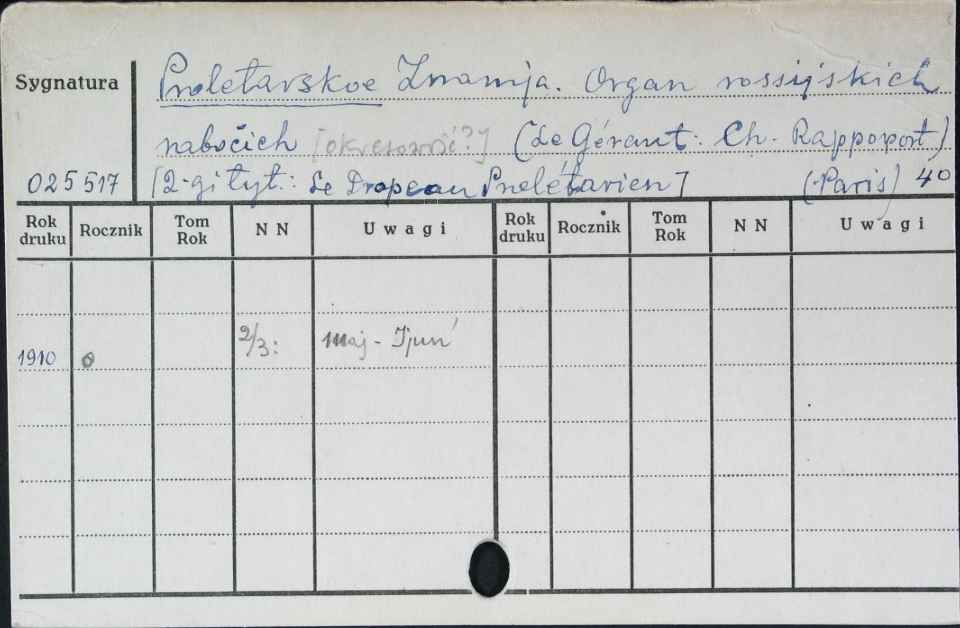 Sygnatura
Proletarskoe Znamja. Organ rossijskich
rabočich [okresowość?] (Le Gérant: Ch. Rappoport)
025517 [2-gi tyt: Le Drapeau Prolétarien] (Paris) 4o
Rok druku Rocznik Tom Rok NN Uwagi Rok druku Rocznik Tom Rok NN Uwagi
1910 0 2/3: maj - Ijun'